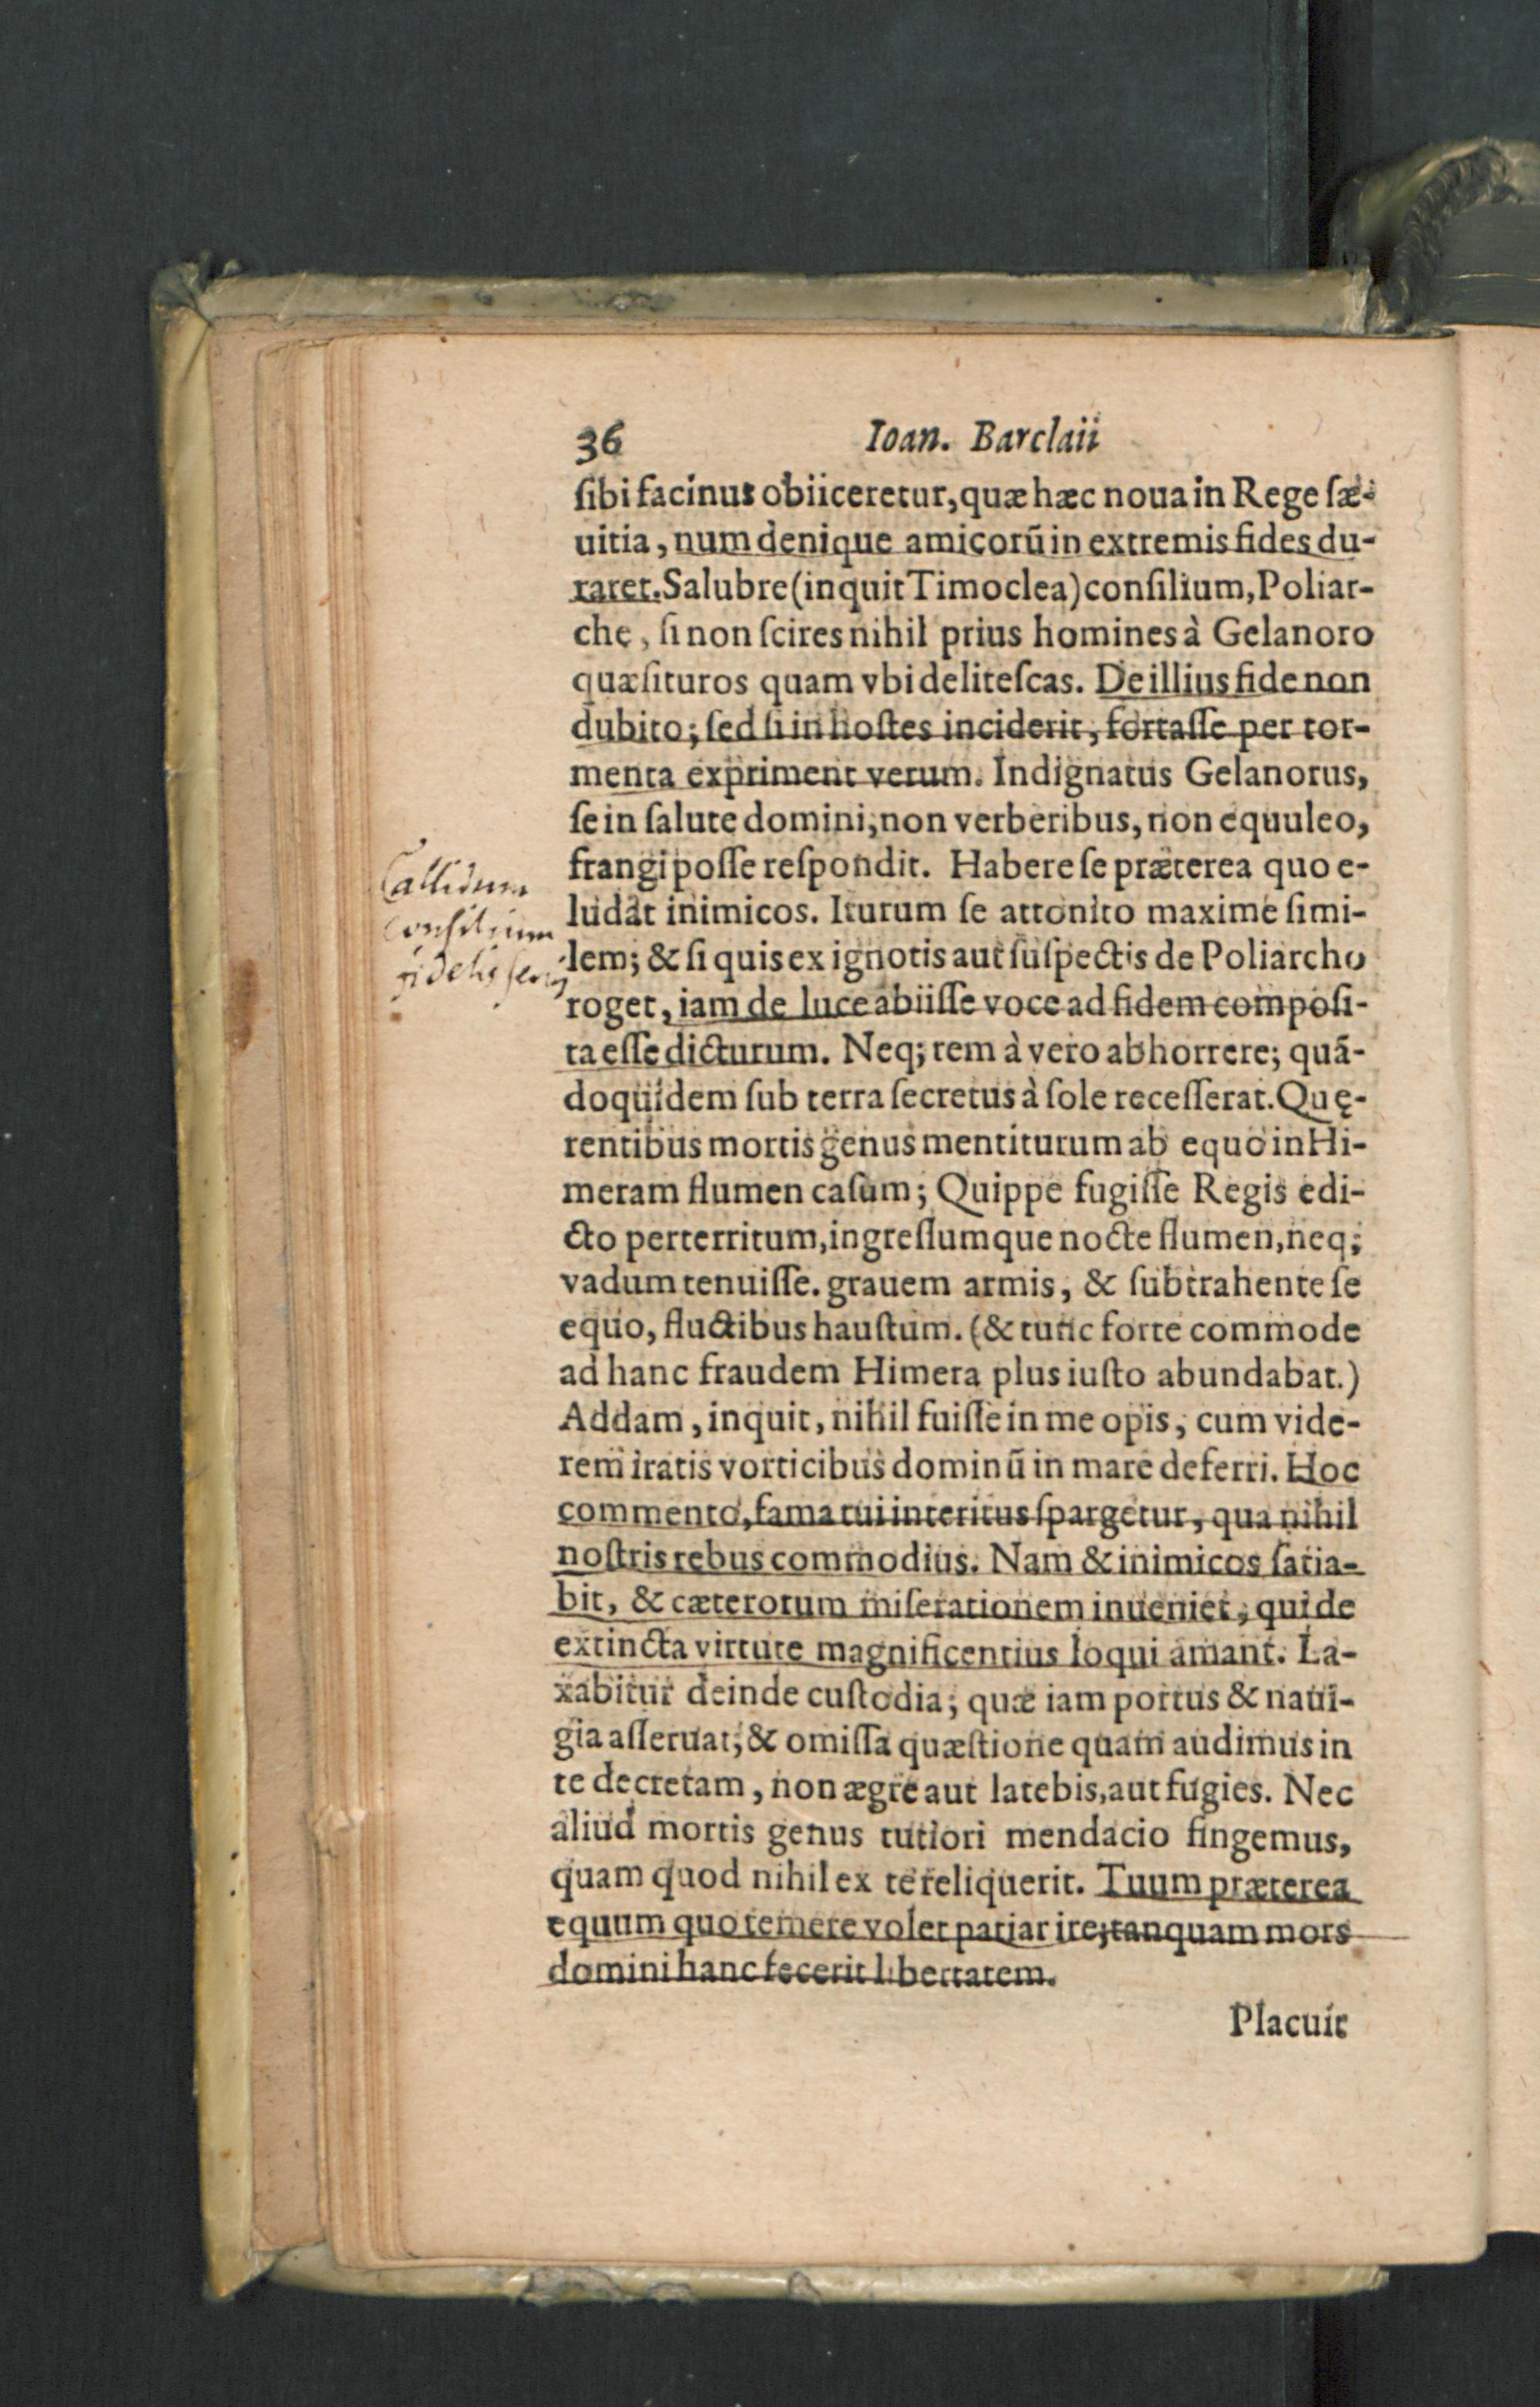 36 Ioan. Barclaii
ſibi facinus obiiceretur, quæ hæc noua in Rege ſæ-
uitia, num denique amicorũ in extremis fides du-
raret. Salubre (inquit Timoclea) conſilium, Poliar-
che, ſi non ſcires nihil prius homines à Gelanoro
quæſituros quam vbi deliteſcas. De illius fide non
dubito; ſed ſi in hoſtes inciderit, fortaſſe per tor-
menta expriment verum. Indignatus Gelanorus,
ſe in ſalute domini, non verberibus, non equuleo,
frangi poſſe reſpondit. Habere ſe præterea quo e-
ludat inimicos. Iturum ſe attonito maxime ſimi-
lem; & ſi quis ex ignotis aut ſuſpectis de Poliarcho
roget, iam de luce abiiſſe voce ad fidem compoſi-
ta eſſe dicturum. Neq; rem à vero abhorrere; quã-
doquidem ſub terra ſecretus à ſole receſſerat. Quę-
rentibus mortis genus mentiturum ab equo in Hi-
meram flumen caſum; Quippe fugiſſe Regis edi-
cto perterritum, ingreſſumque nocte flumen, neq;
vadum tenuiſſe. grauem armis, & ſubtrahente ſe
equo, fluctibus hauſtum. (& tunc forte commode
ad hanc fraudem Himera plus iuſto abundabat.)
Addam, inquit, nihil fuiſſe in me opis, cum vide-
rem iratis vorticibus dominũ in mare deferri. Hoc
commento, fama tui interitus ſpargetur, qua nihil
noſtris rebus commodius. Nam & inimicos ſatia-
bit, & cæterorum miſerationem inueniet, qui de
extincta virtute magnificentius loqui amant. La-
xabitur deinde cuſtodia; quæ iam portus & naui-
gia aſſeruat; & omiſſa quæſtione quam audimus in
te decretam, non ægre aut latebis, aut fugies. Nec
aliud mortis genus tutiori mendacio fingemus,
quam quod nihil ex te reliquerit. Tuum præterea
equum quo temere volet patiar ire; tanquam mors
domini hanc fecerit libertatem.
Placuit
Callidum
consilium
fidelis